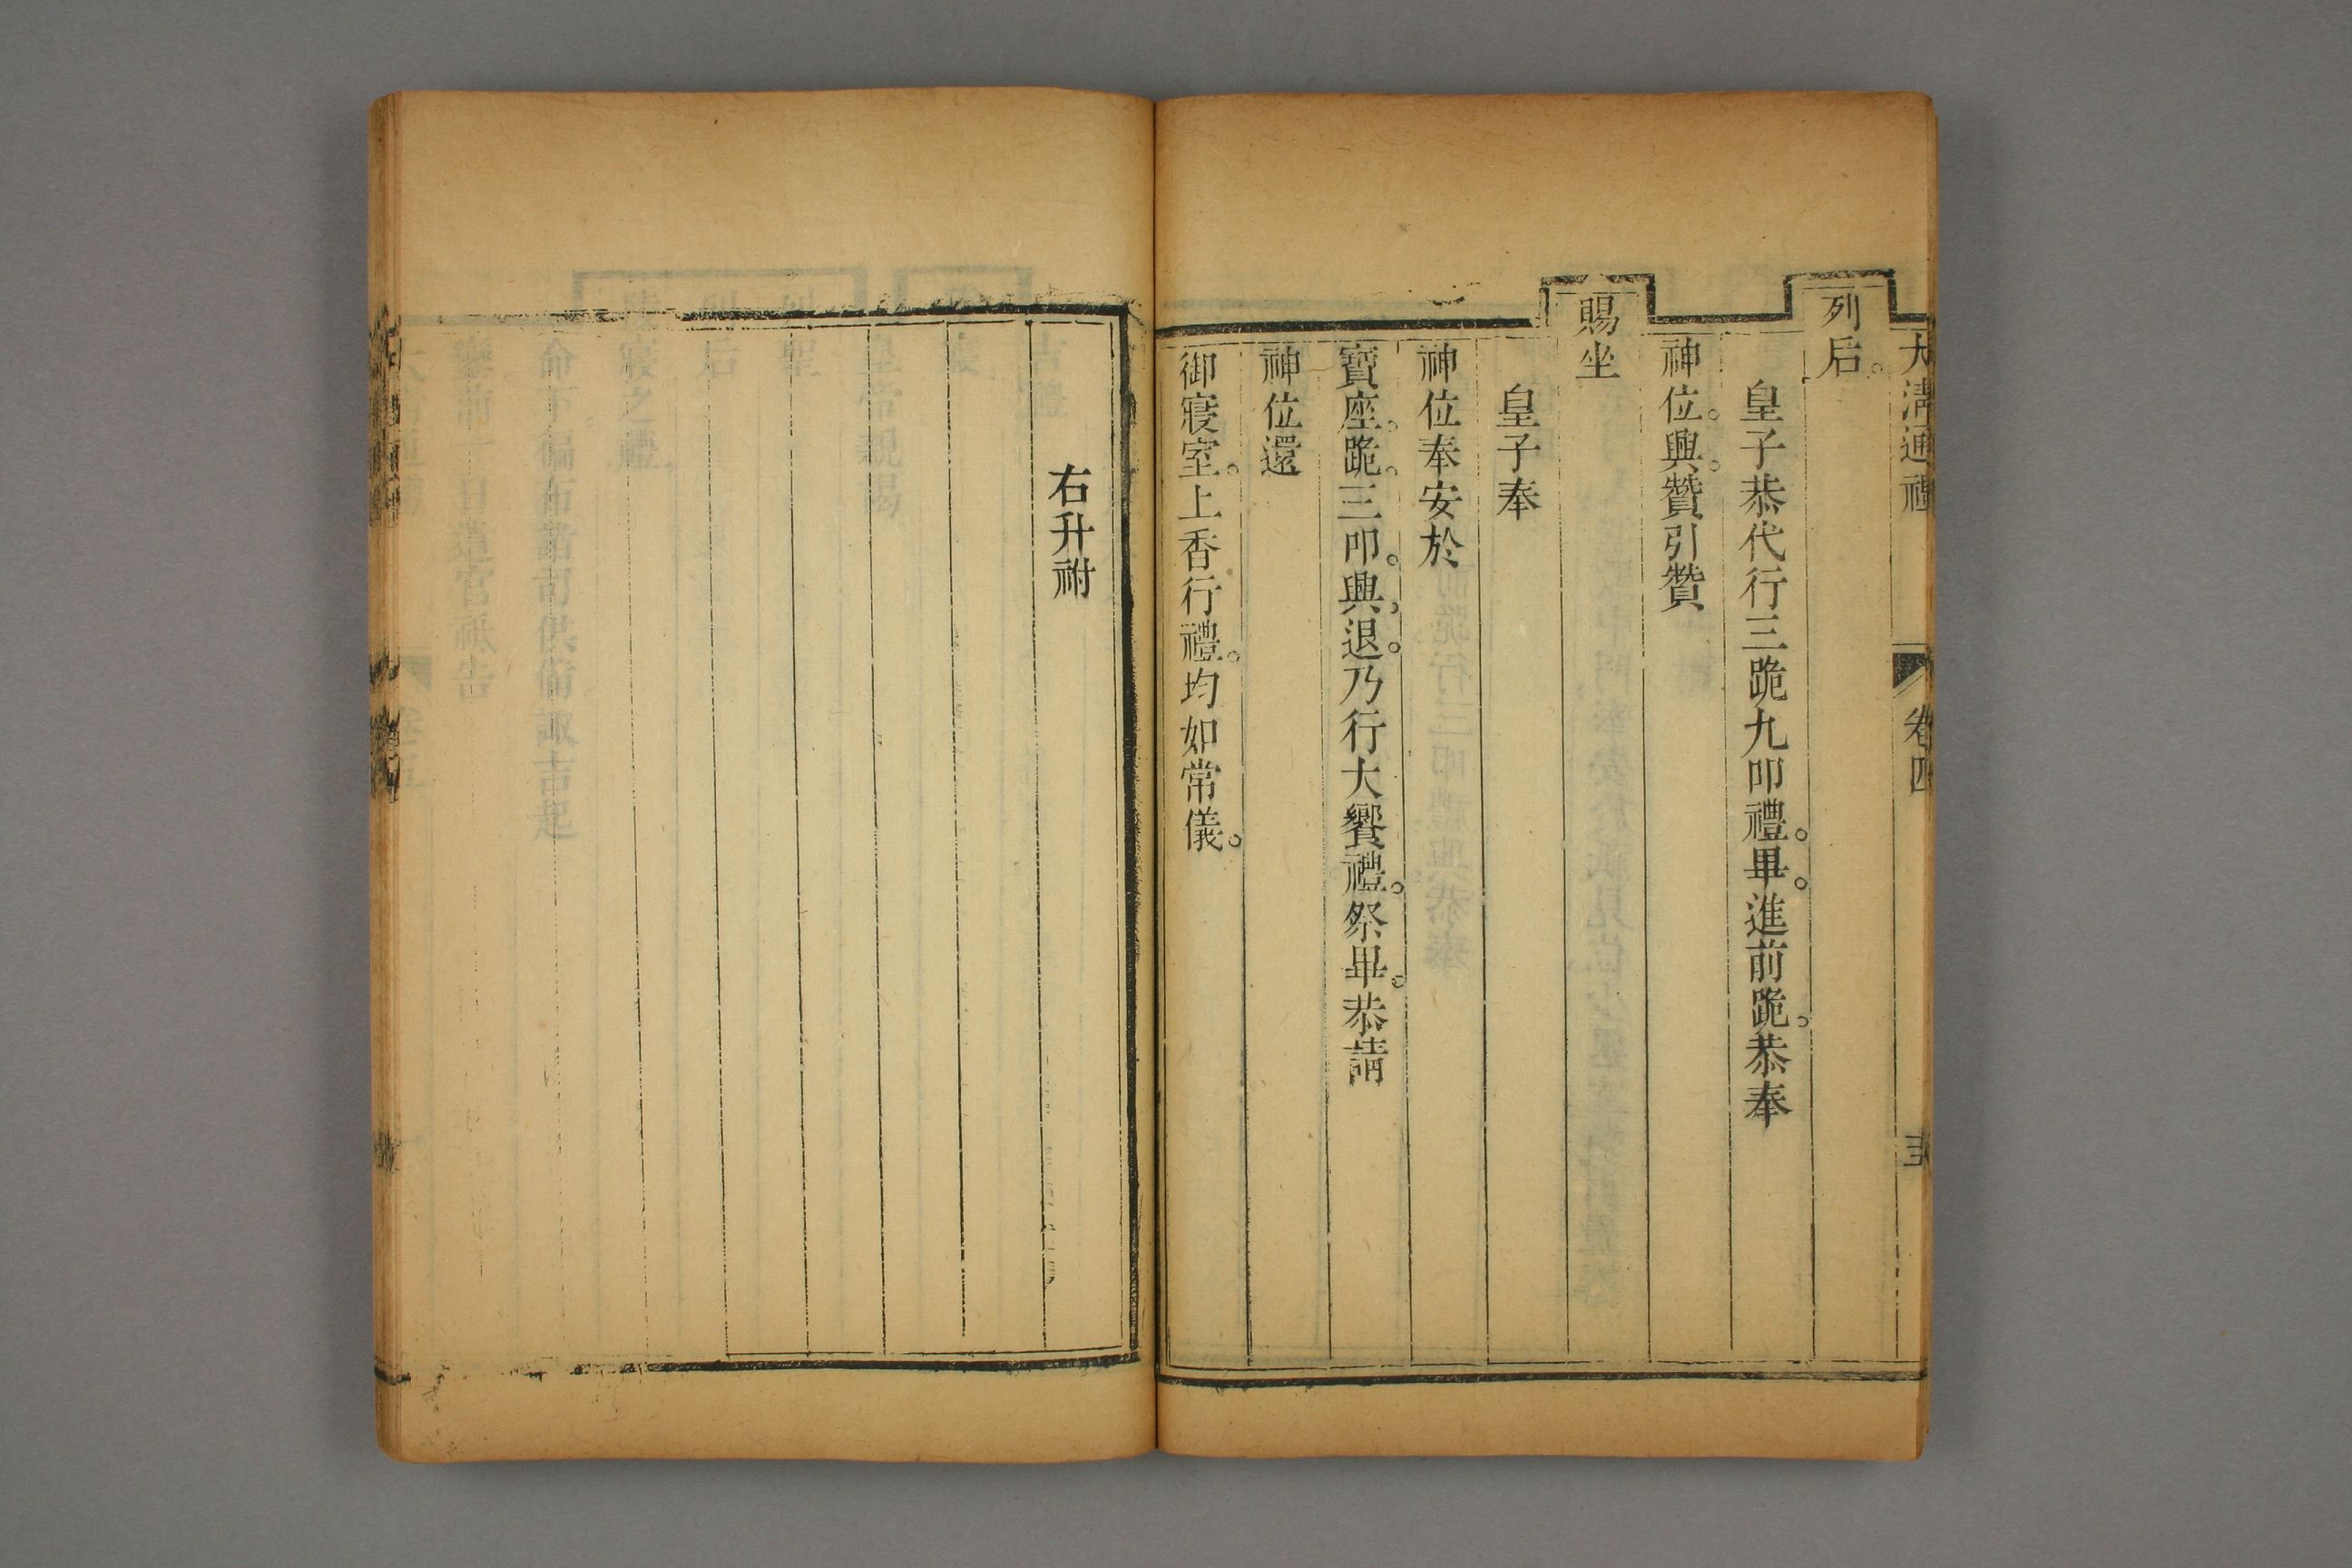 大清通禮 卷四
列后。
皇子恭代行三跪九叩禮。畢。進前跪。恭奉
神位。興。贊引贊
賜坐
皇子奉
神位奉安於
寶座。跪。三叩。興。退。乃行大饗禮。祭畢。恭請
神位還
御寢室。上香行禮。均如常儀。
右升祔